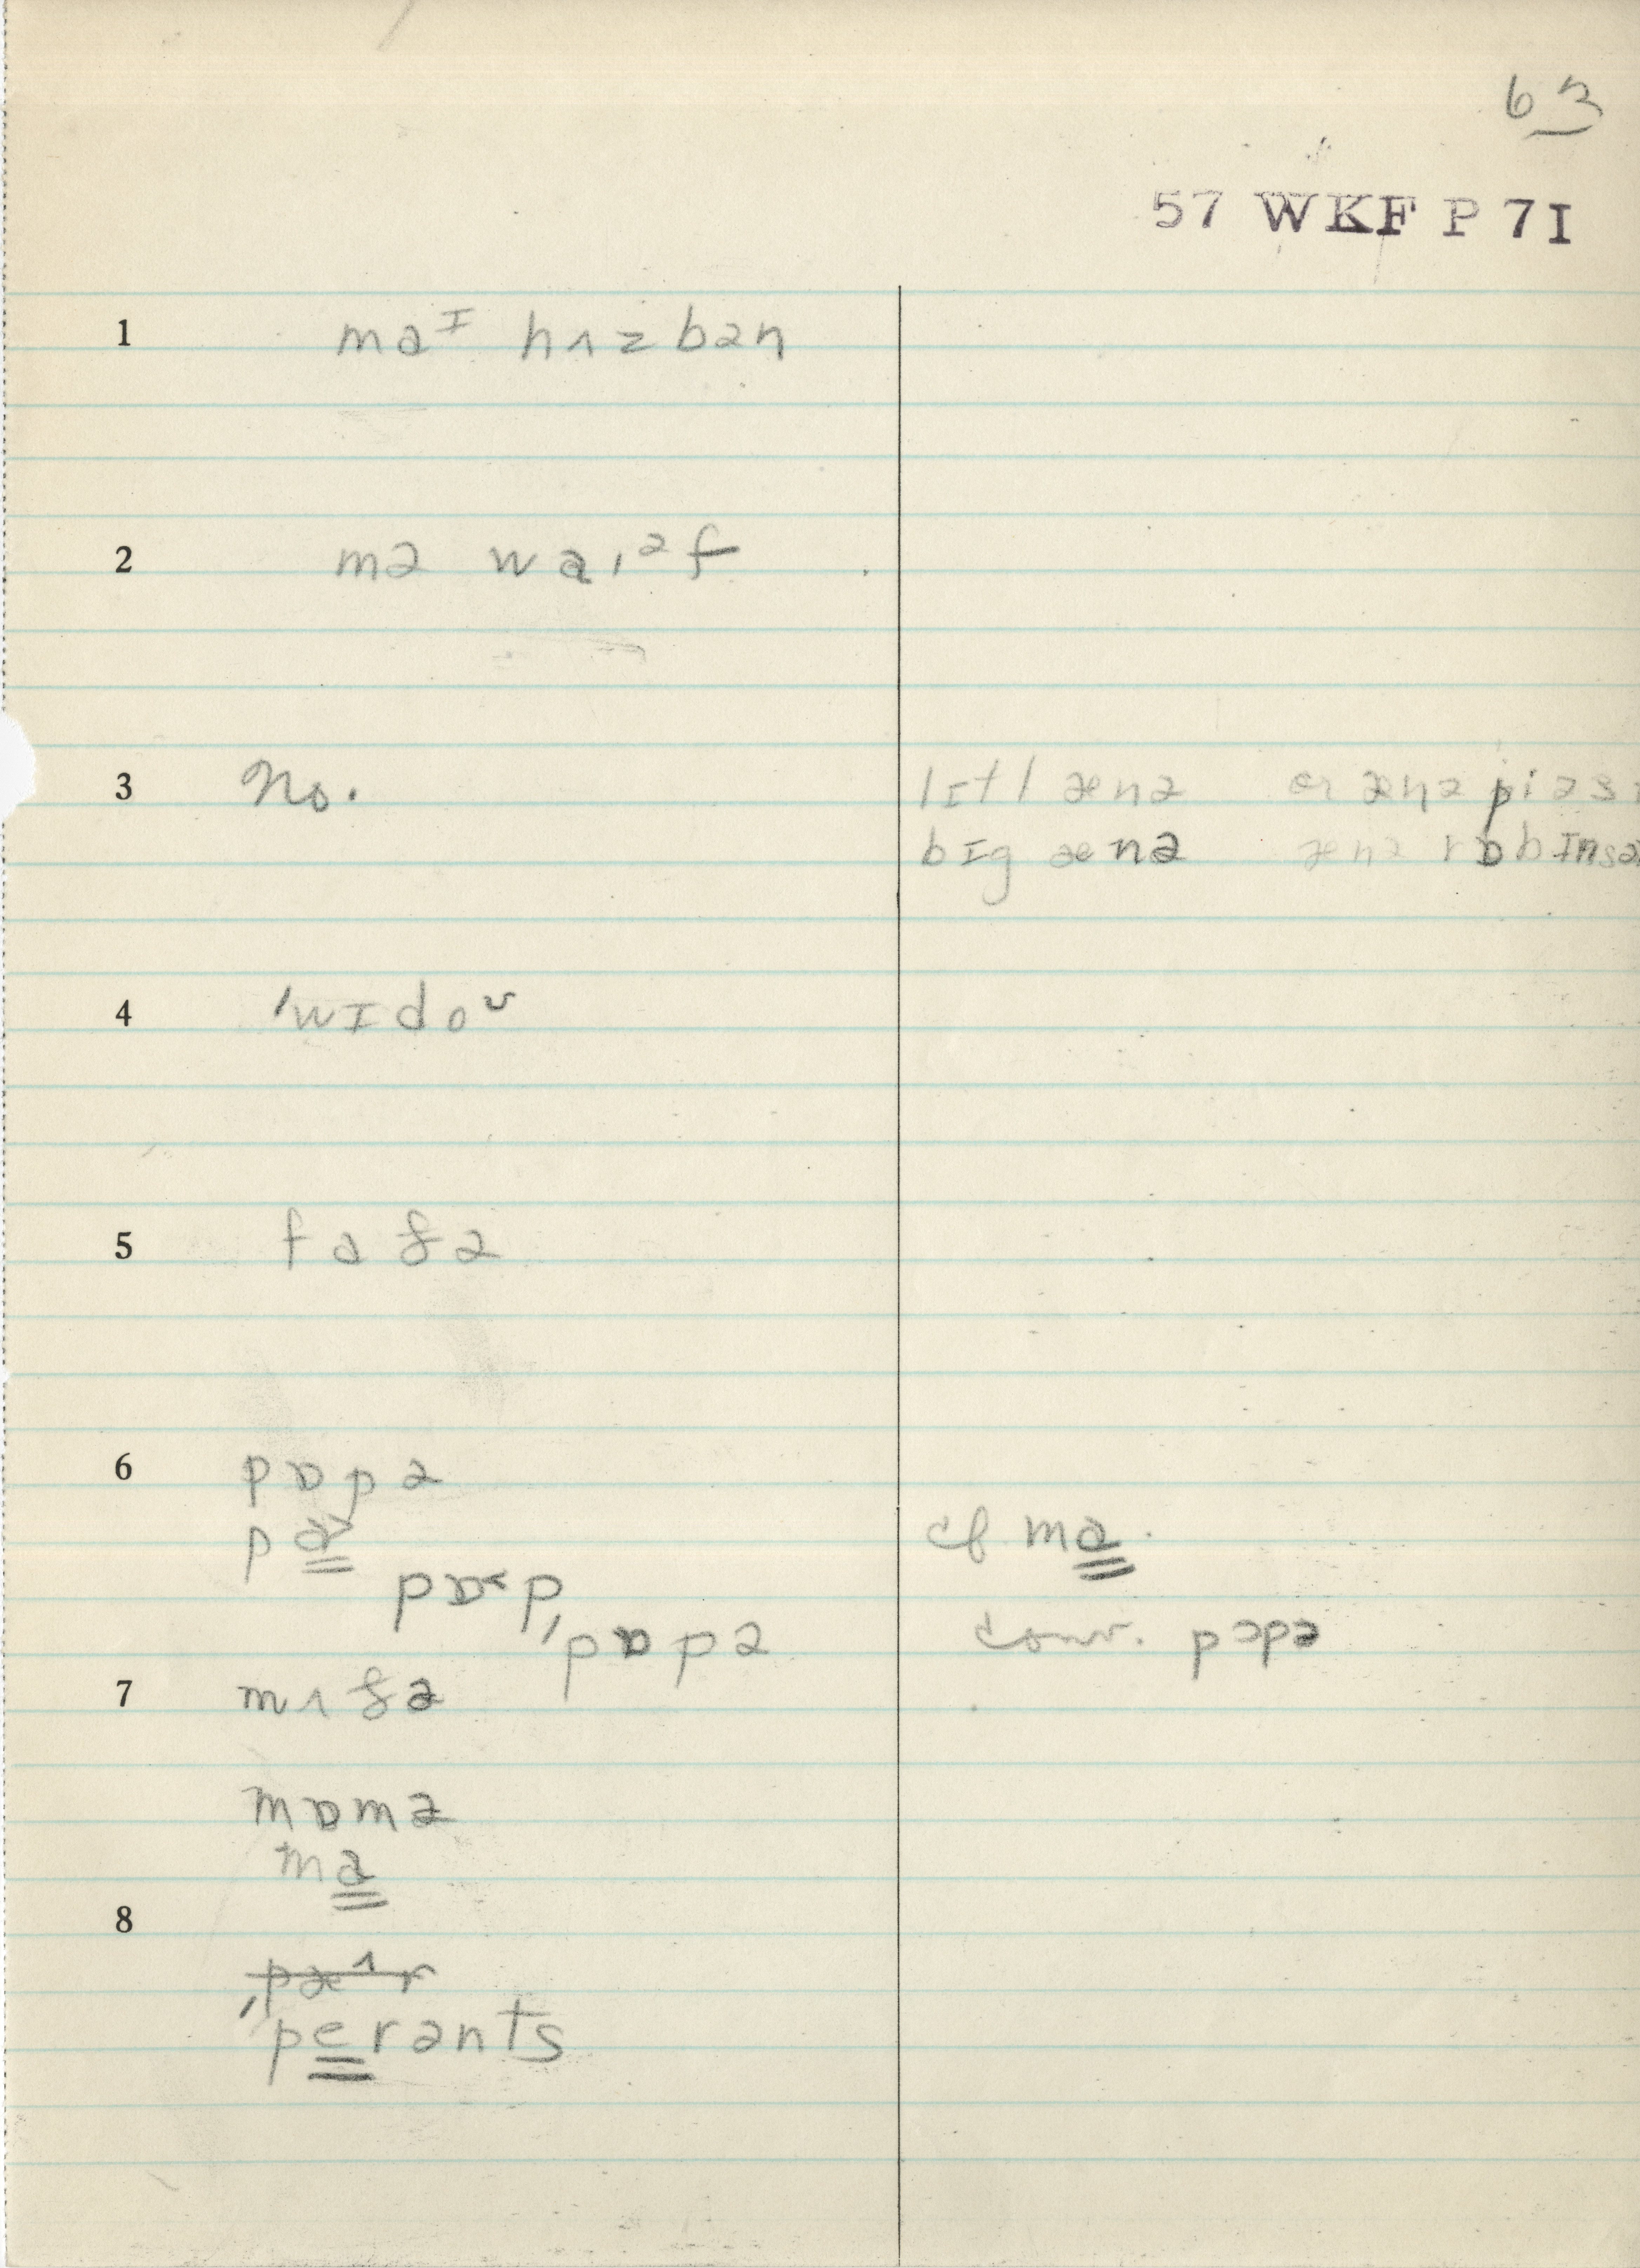 63
57 WKF P 7I
1 maᴵ hʌzbən
2 mə wa,ᵊf
3 No. lɪtl ænə or ænə piəs
bɪg ænə ænə rɒbɪnsə
4 'wɪdoᶷ
5 faðə
6 pɒpə
pa̳˃ cf ma̳.
pɒ˂p,
'pɒpə conv. pɔpə
7 mʌðə
mɒmə
ma̳
8
pæ^r
'pe̳rənts